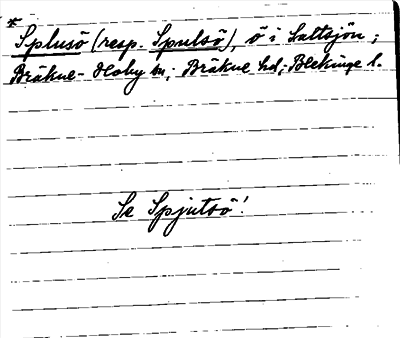 *
Splusö (resp. Spulsö), ö i Saltsjön;
Bräkne-Hoby sn; Bräkne hd; Blekinge l.
Se Spjutsö!